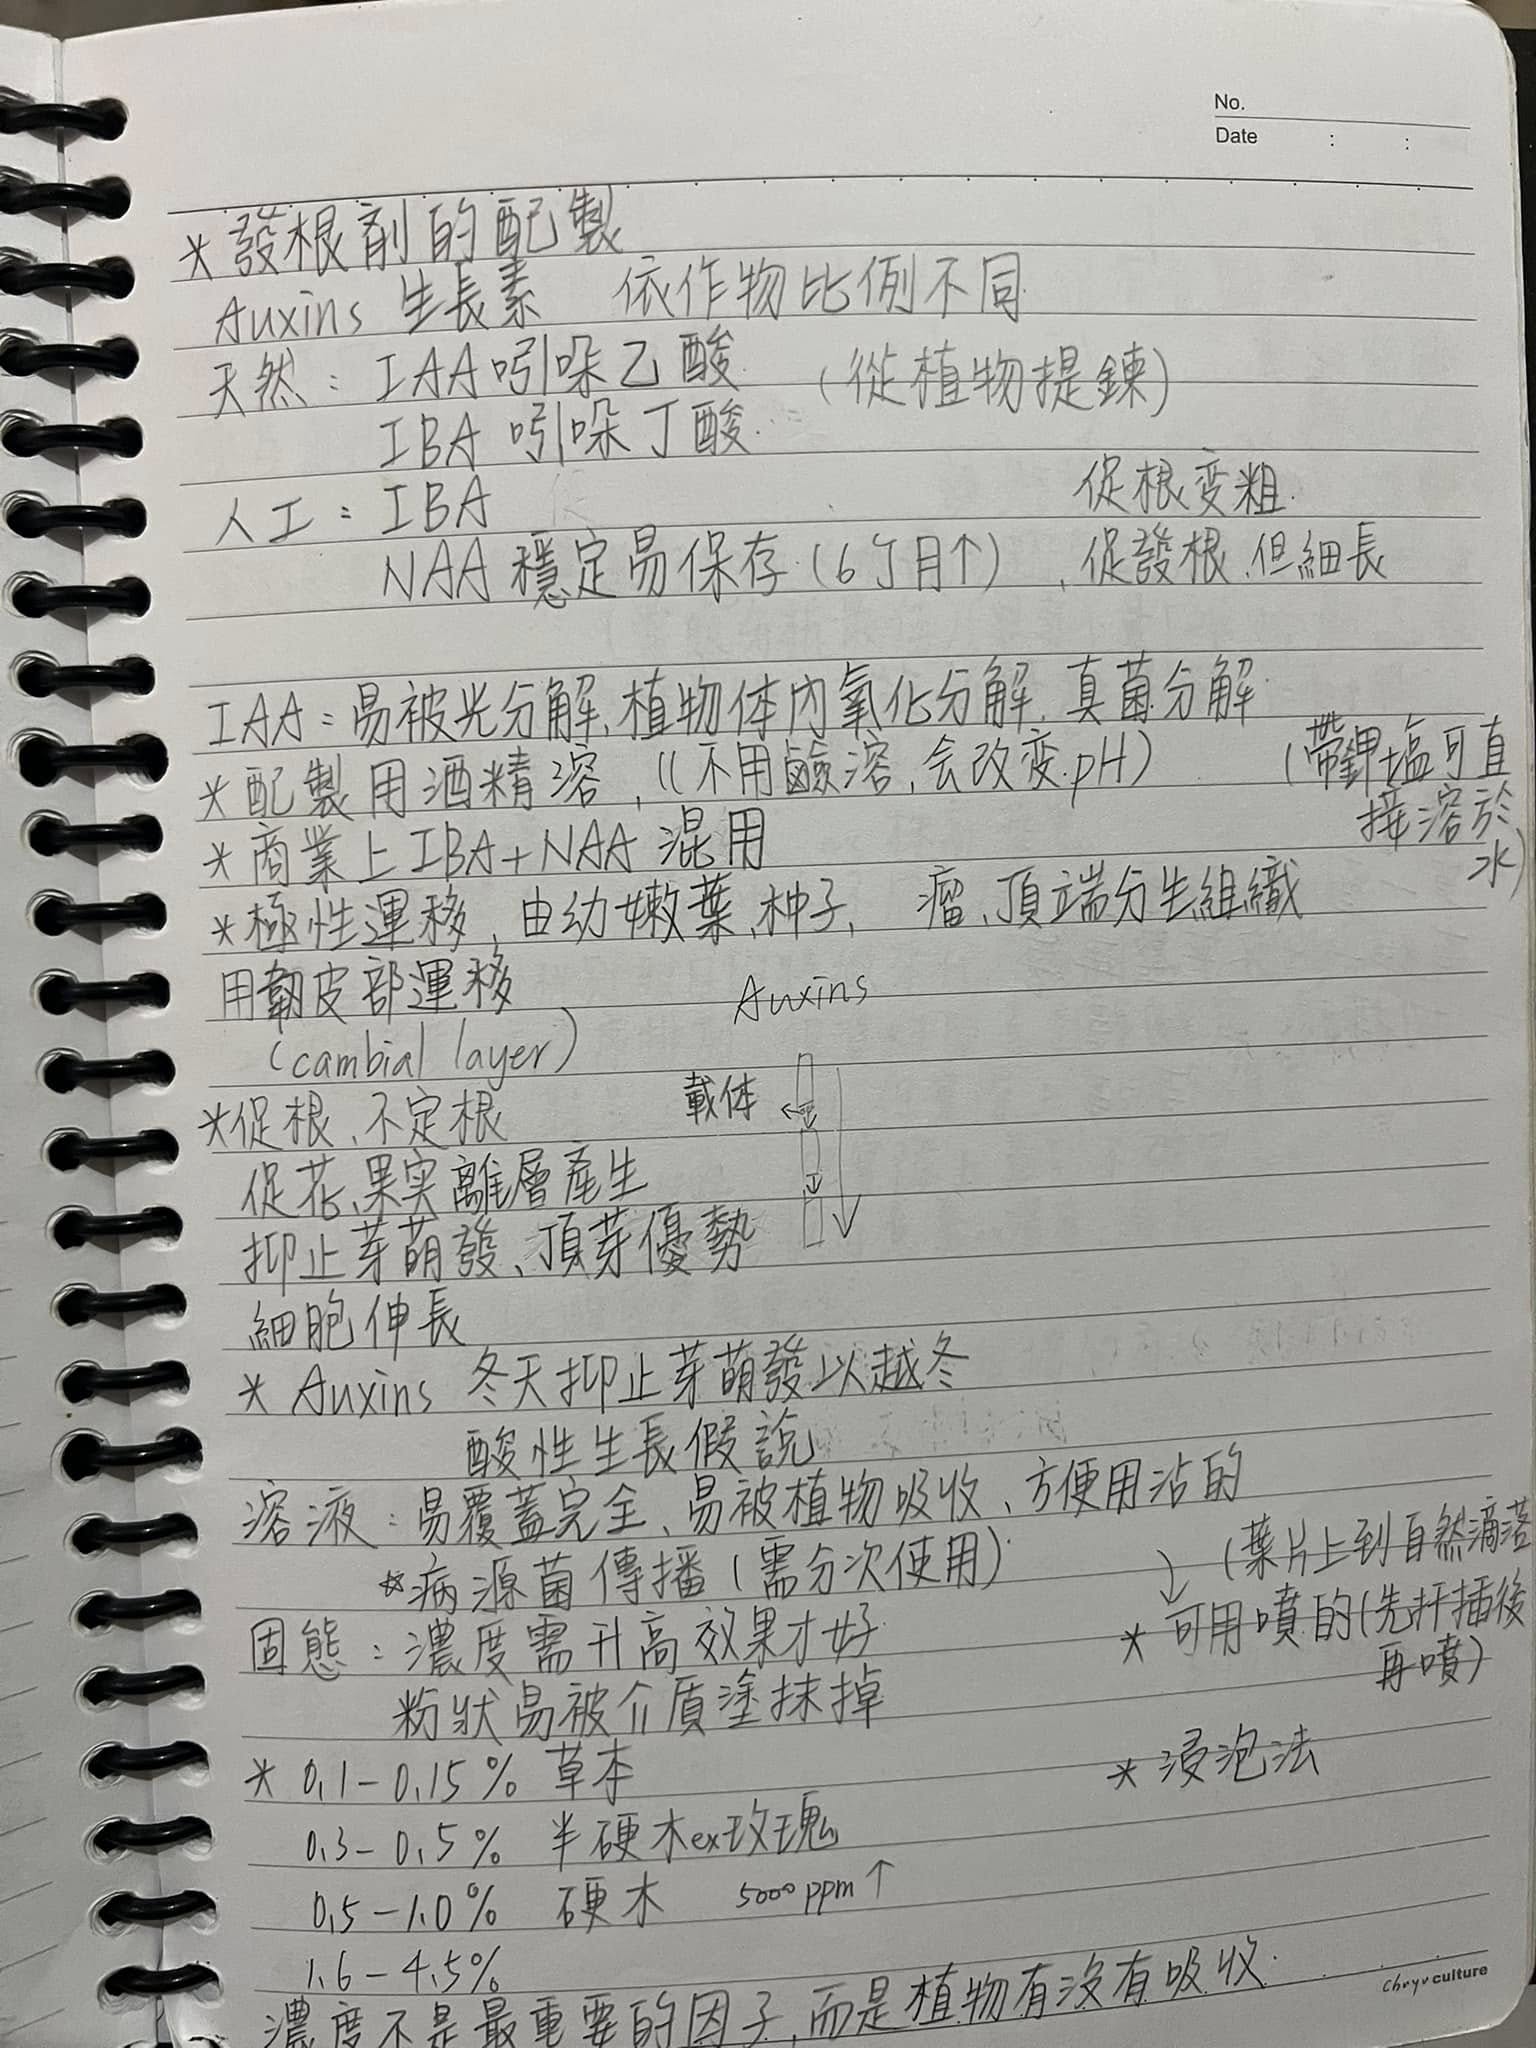 No.
Date : :
*發根劑的配製
Auxins 生長素 依作物比例不同
天然：IAA吲哚乙酸 (從植物提鍊)
IBA 吲哚丁酸
人工：IBA 促根变粗.
NAA 穩定易保存(6个月↑)、促發根、但細長
IAA：易被光分解、植物体內氧化分解、真菌分解
*配製用酒精溶，((不用鹼溶，会改变pH) (帶鉀塩可直
接溶於
水)
*商業上IBA+NAA混用
*極性運移，由幼嫩葉、种子、瘤、頂端分生組織
用韌皮部運移 Auxins
(cambial layer)
載体
*促根、不定根
促花、果实離層產生
抑止芽萌發、頂芽優勢
細胞伸長
* Auxins 冬天抑止芽萌發以越冬
酸性生長假說
溶液：易覆蓋完全、易被植物吸收、方便用沾的
(葉片上到自然滴落
☆病源菌傳播(需分次使用)
* 可用噴的(先扦插後
再噴)
固態：濃度需升高效果才好
粉狀易被介質塗抹掉
* 0.1-0.15% 草本
* 浸泡法
0.3-0.5% 半硬木ex玫瑰
0.5-1.0% 硬木 5000 ppm↑
1.6-4.5%
濃度不是最重要的因子，而是植物有沒有吸收.
culture